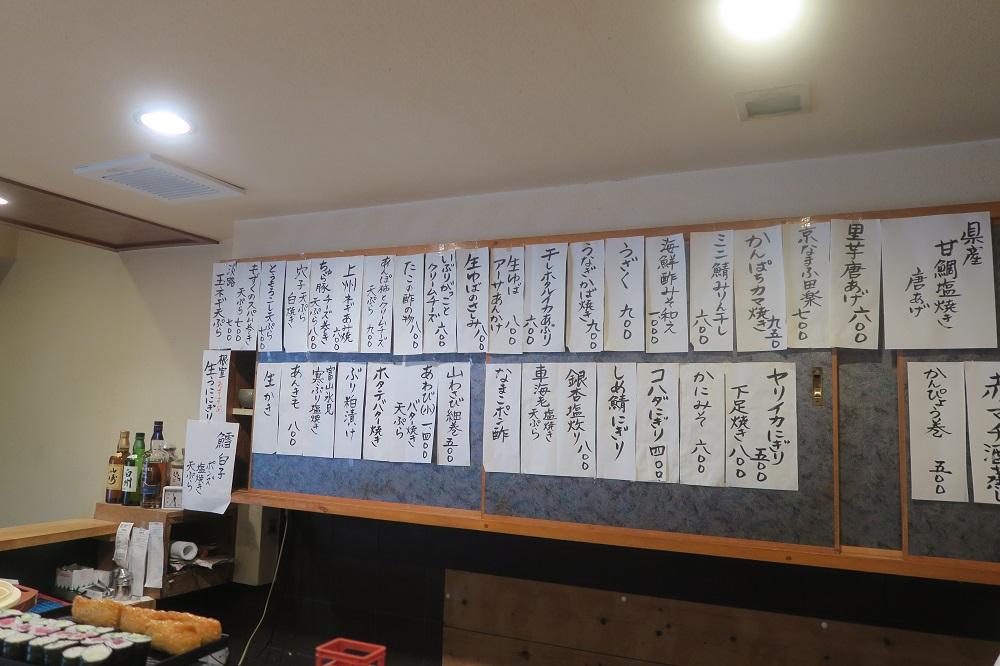 県産
甘鯛塩焼き
唐あげ
里芋唐あげ 六〇〇
京なまふ田楽 七〇〇
かんぱちカマ焼き 九五〇
ミニ鯖みりん干し 六〇〇
海鮮酢みそ和え 一〇〇〇
うざく 九〇〇
うなぎかば焼き 九〇〇
干しホタルイカあぶり 六〇〇
生ゆば
アーサあんかけ 八〇〇
生ゆばのさしみ 八〇〇
いぶりがっこと
クリームチーズ 六〇〇
たこ酢の物 八〇〇
あんぽ柿とクリームチーズ
天ぷら 九〇〇
上州ネギあみ焼 八〇〇
ちゅら豚チーズ巻き
天ぷら 八〇〇
穴子 天ぷら
白焼き
とうもろこし天ぷら 七〇〇
もずくのスパム巻き
天ぷら 七〇〇
淡路
玉ネギ天ぷら 七〇〇
赤マチ酒蒸
かんぴょう巻 五〇〇
ヤリイカにぎり 五〇〇
下足焼き 八〇〇
かにみそ 六〇〇
コハダにぎり 四〇〇
しめ鯖にぎり
銀杏塩炒り 八〇〇
車海老 塩焼き
天ぷら
なまこポン酢
山わさび細巻 五〇〇
あわび(小) 一四〇〇
バター焼き
天ぷら
ホタテバター焼き
ぶり粕漬け
富山氷見
寒ぶり塩焼き
あんきも 八〇〇
生かき
根室
生うににぎり
鱈白子
ポンズ
塩焼き
天ぷら
山崎
白州